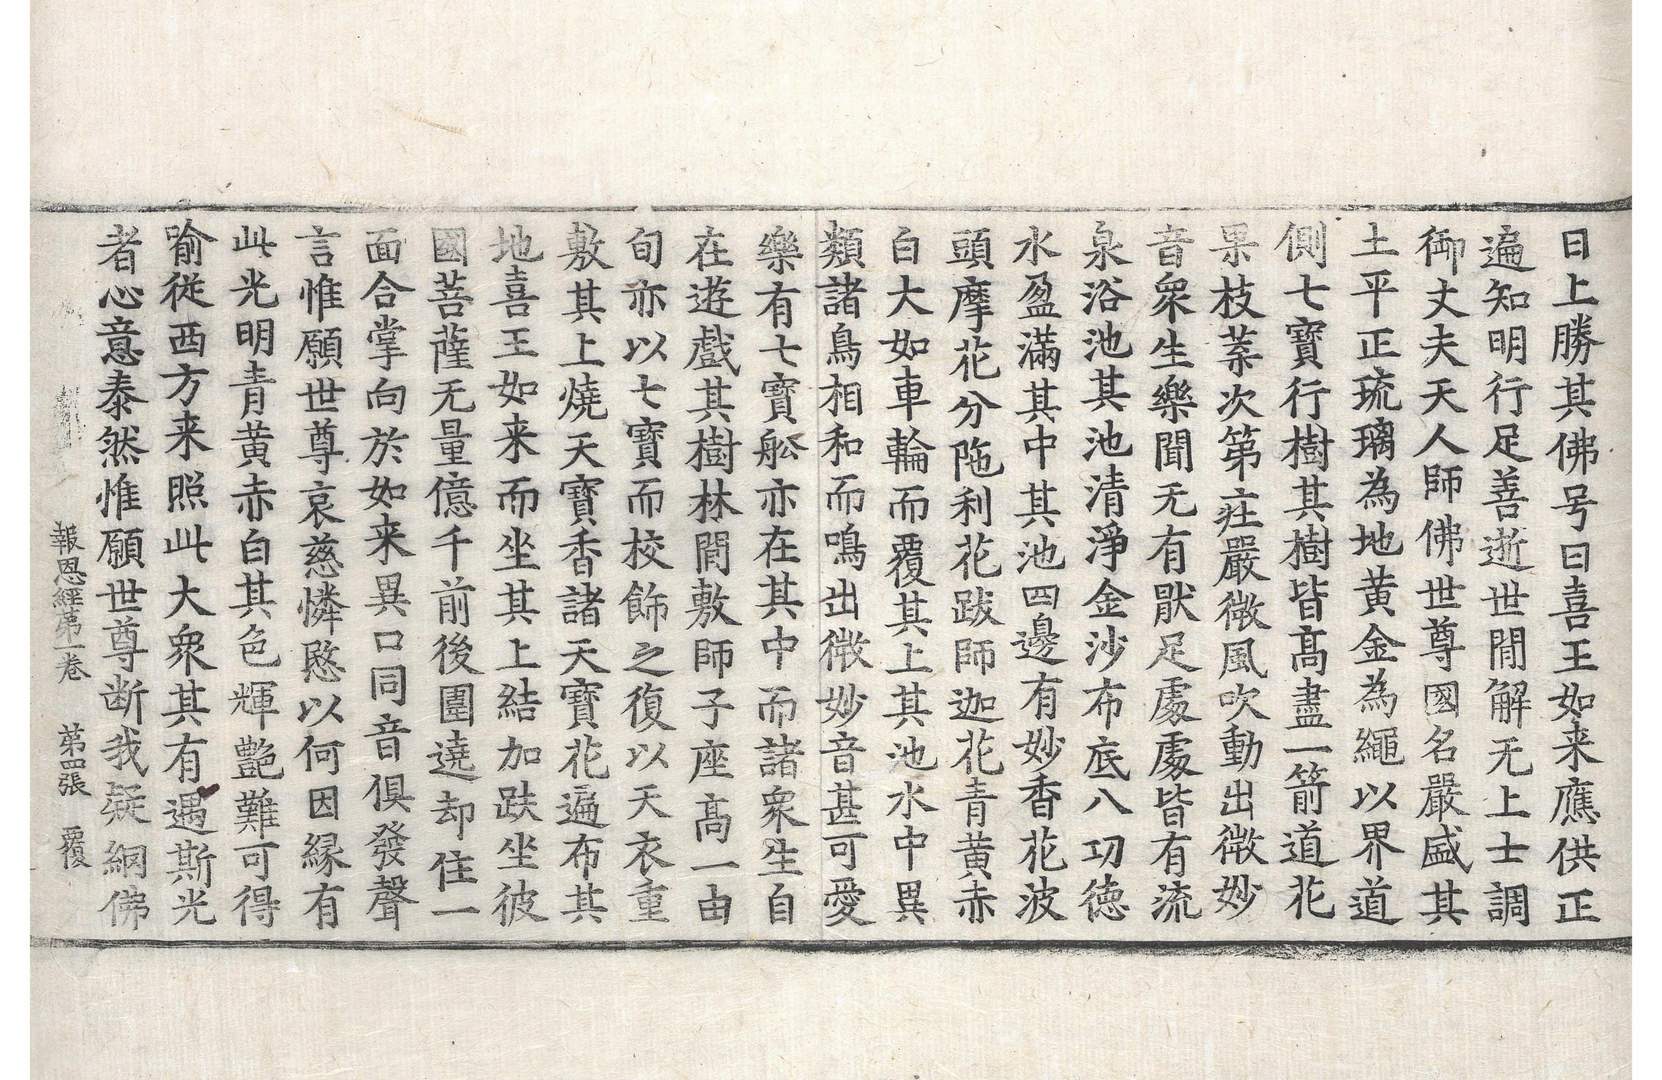 曰上勝其佛号曰喜王如来應供正
遍知明行足善逝世閒解无上士調
御丈夫天人師佛世尊國名嚴盛其
土平正琉璃為地黄金為繩以界道
側七寶行樹其樹皆髙盡一箭道花
果枝葉次第莊嚴微風吹動出微妙
音衆生樂聞无有猒足處處皆有流
泉浴池其池清淨金沙布底八功德
水盈滿其中其池四邊有妙香花波
頭摩花分陁利花跋師迦花青黄赤
白大如車輪而覆其上其池水中異
類諸鳥相和而鳴出微妙音甚可愛
樂有七寶舩亦在其中而諸衆生自
在遊戲其樹林閒敷師子座髙一由
旬亦以七寶而校飾之復以天衣重
敷其上燒天寶香諸天寶花遍布其
地喜王如来而坐其上結加趺坐彼
國菩薩无量億千前後圍遶却住一
面合掌向於如来異口同音俱發聲
言惟願世尊哀慈憐愍以何因縁有
此光明青黄赤白其色輝艶難可得
喻従西方来照此大衆其有遇斯光
者心意泰然惟願世尊断我疑網佛
報恩經第一卷 第四張 覆